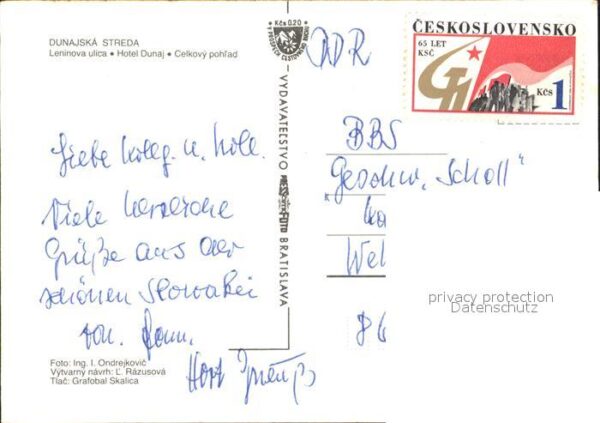 DUNAJSKÁ STREDA
Leninova ulica • Hotel Dunaj • Celkový pohľad
Kčs 0,20
DDR
ČESKOSLOVENSKO
65 LET
KSČ
Kčs 1
BBS
"Geschw. Scholl"
Wel
privacy protection
Datenschutz
Liebe Kolleg. u. Koll.
Viele herzliche
Grüße aus der
schönen Slowakei
von
Horst
VYDAVATEĽSTVO BRATISLAVA
Foto: Ing. I. Ondrejkovič
Výtvarný návrh: Ľ. Rázusová
Tlač: Grafobal Skalica